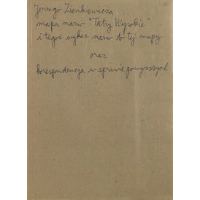 Jerzego Zienkiewicza
mapa nazw "Taby Wyrobie"
i tegoż wykaz nazw do tej mapy
oraz
korespondencja w sprawie powyższych